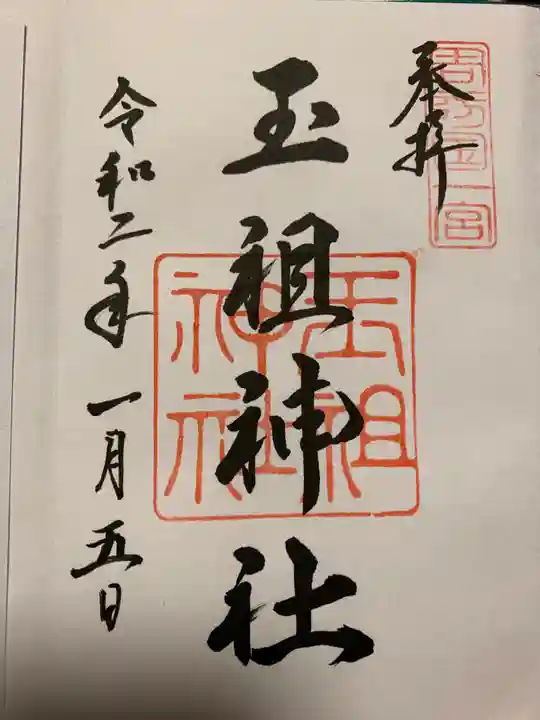 周防国一宮
奉拝
玉祖神社
玉祖神社
令和二年一月五日